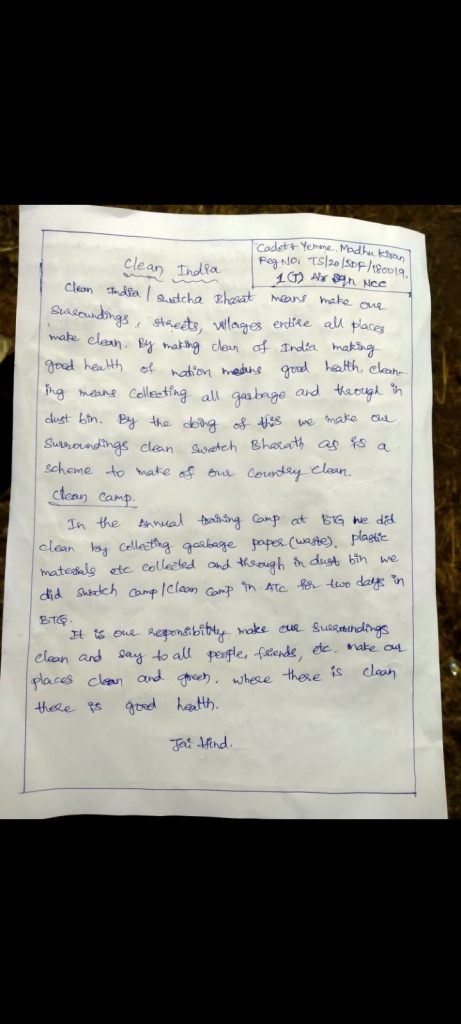 Cadet Yemme. Madhu Kiran
Reg NO: TS/20/SDF/180019.
1 (T) Air Sqn NCC
Clean India
Clean India / Swatcha Bharat means make our
surroundings, streets, villages entire all places
make clean. By making clean of India making
good health of nation means good health. clean-
ing means collecting all garbage and through in
dust bin. By the doing of this we make our
surroundings clean Swatch Bharath as is a
scheme to make of our country clean.
Clean Camp.
In the Annual training camp at BTG we did
clean by collecting garbage paper (waste), plastic
materials etc collected and through in dust bin we
did Swatch camp / Clean camp in ATC for two days in
BTG.
It is our responsibility make our surroundings
clean and say to all people, friends, etc. make our
places clean and green. where there is clean
there is good health.
Jai Hind.